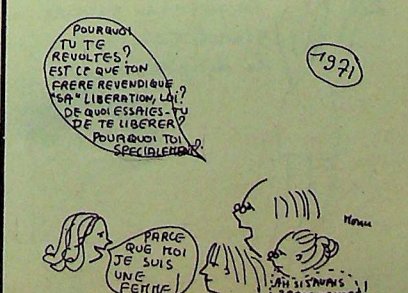 POURQUOI
TU TE
REVOLTES?
EST CE QUE TON
FRERE REVENDIQUE
"SA" LIBERATION, LUI?
DE QUOI ESSAIES-TU
DE TE LIBERER?
POURQUOI TOI
SPECIALEMENT?
1971
PARCE
QUE MOI
JE SUIS
UNE
FEMME!
AH SI J'AVAIS